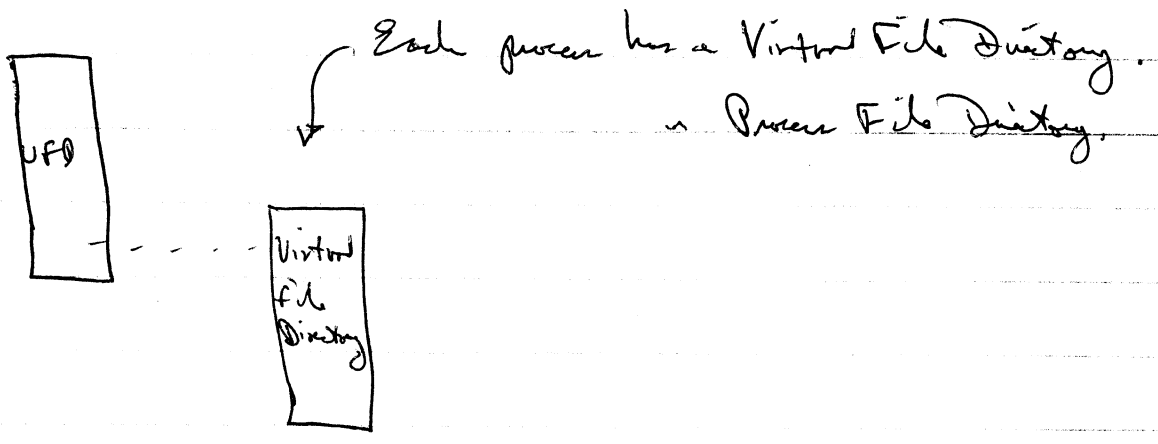 Each process has a Virtual File Directory.
or Process File Directory.
UFD
Virtual
File
Directory